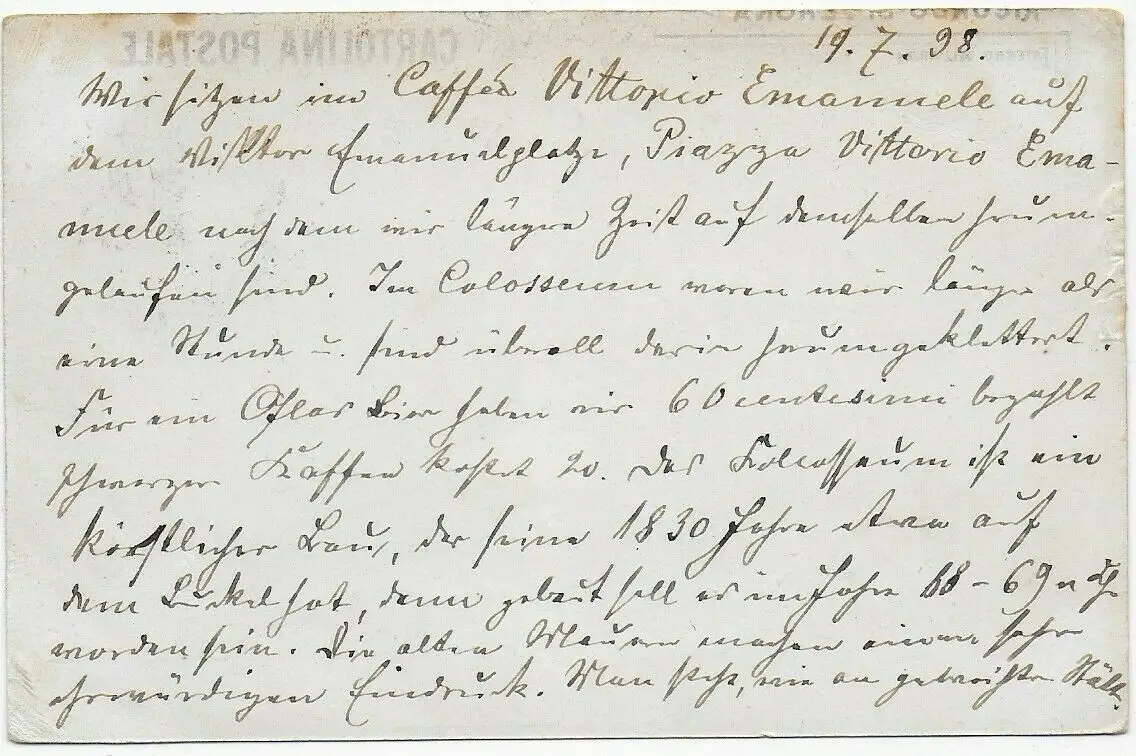 19. 7. 98.
Wir sitzen im Caffée Vittorio Emanuele auf
dem Viktor Emanuelplatze, Piazza Vittorio Ema-
nuele nach dem wir längre Zeit auf demselben herum-
gelaufen sind. Im Colosseum waren wir länger als
eine Stunde u. sind überall darin herumgeklettert.
Für ein Glas Bier haben wir 60 centesimi bezahlt
schwarzer Kaffee kostet 20. Das Kolosseum ist ein
köstlicher Bau, der seine 1830 Jahre etwa auf
dem Buckel hat, denn gebaut soll es im Jahre 68 - 69 n Ch
worden sein. Die alten Mauern machen einen sehr
ehrwürdigen Eindruck. Man steht, wie an geweihter Stätte.
CARTOLINA POSTALE